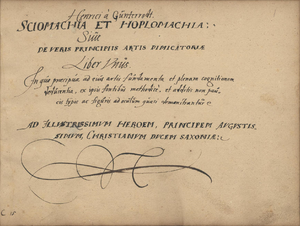 Henrici à Günterrodt.
SCIOMACHIA ET HOPLOMACHIA:
Siue
DE VERIS PRINCIPIIS ARTIS DIMICATORIÆ
Liber Vnus
In quo præcipua ad eius artis fundamenta et plenam cognitionem
ex ipsis fontibus methodicè, et additis non
ac figuris ad oculum quasi demonstrantur
AD ILLVSTRISSIMVM HEROEM, PRINCIPEM AVGVSTIS,
SIMVM, CHRISTIANVM DVCEM SAXONIÆ:
C 15